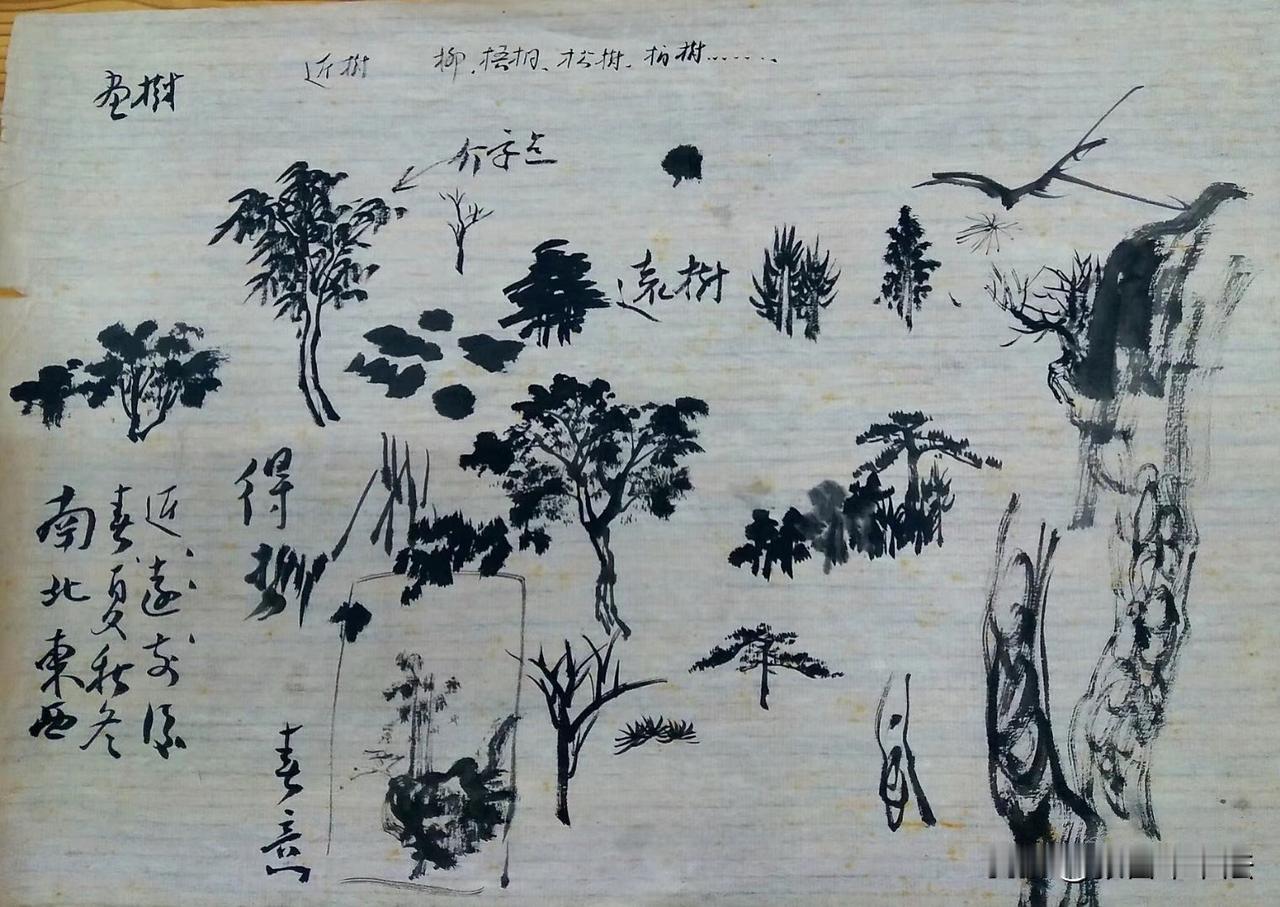 畫樹
近樹 柳、梧桐、松樹、柏樹……、
介字点
遠樹
近遠前後
春夏秋冬
南北東西
得
春意